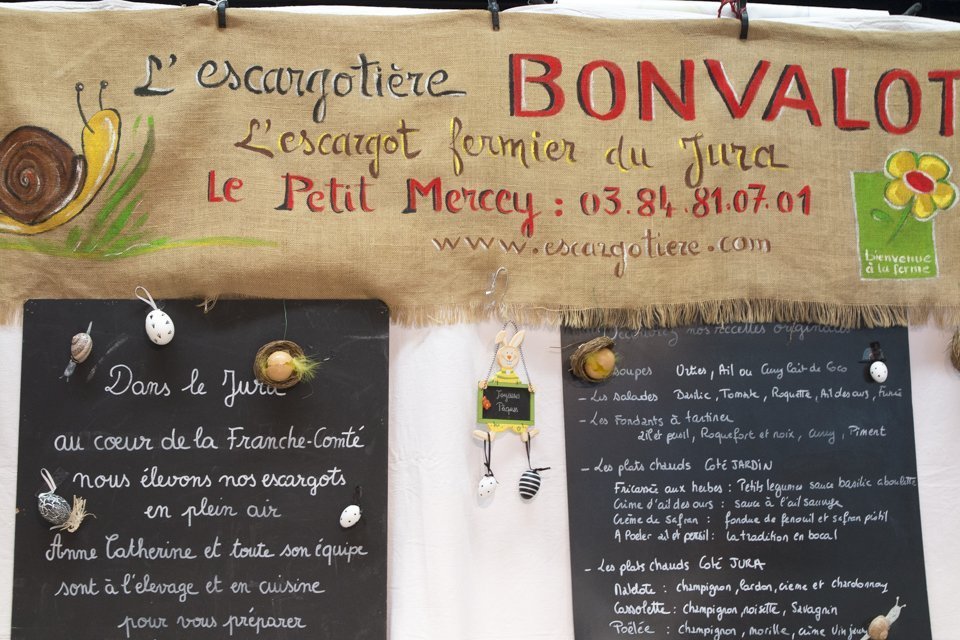 L'escargotière BONVALOT
L'escargot fermier du Jura
Le Petit Mercey : 03.84.81.07.01
www.escargotiere.com
bienvenue
à la ferme
Dans le Jura
au coeur de la Franche-Comté
nous élevons nos escargots
en plein air
Anne Catherine et toute son équipe
sont à l'élevage et en cuisine
pour vous préparer
Joyeuses
Pâques
Découvrez nos recettes originales
soupes Orties, Ail ou Curry lait de Coco
- Les salades Basilic, Tomate, Roquette, Ail des ours,
- Les Fondants à tartiner
ail et persil, Roquefort et noix, Curry, Piment
- Les plats chauds Côté JARDIN
Fricassée aux herbes : Petits légumes sauce basilic ciboulette
Crème d'ail des ours : sauce à l'ail sauvage
Crème de Safran : fondue de fenouil et safran pistil
A Poêler ail et persil : la tradition en bocal
- Les plats chauds Côté JURA
: champignon, lardon, crème et chardonnay
Cassolette : champignon, noisette, Savagnin
Poêlée : champignon, morille, crème Vin jaune